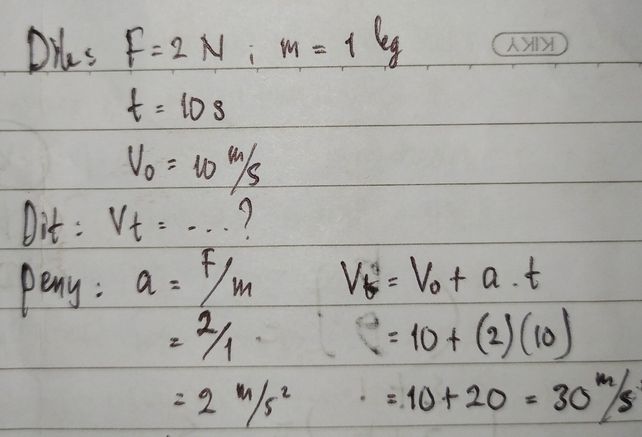 Dik: F = 2 N ; m = 1 kg
KIKY
t = 10 s
Vo = 10 m/s
Dit : Vt = ....?
Peny : a = F/m
= 2/1
= 2 m/s²
Vt = Vo + a . t
= 10 + (2)(10)
= 10 + 20 = 30 m/s